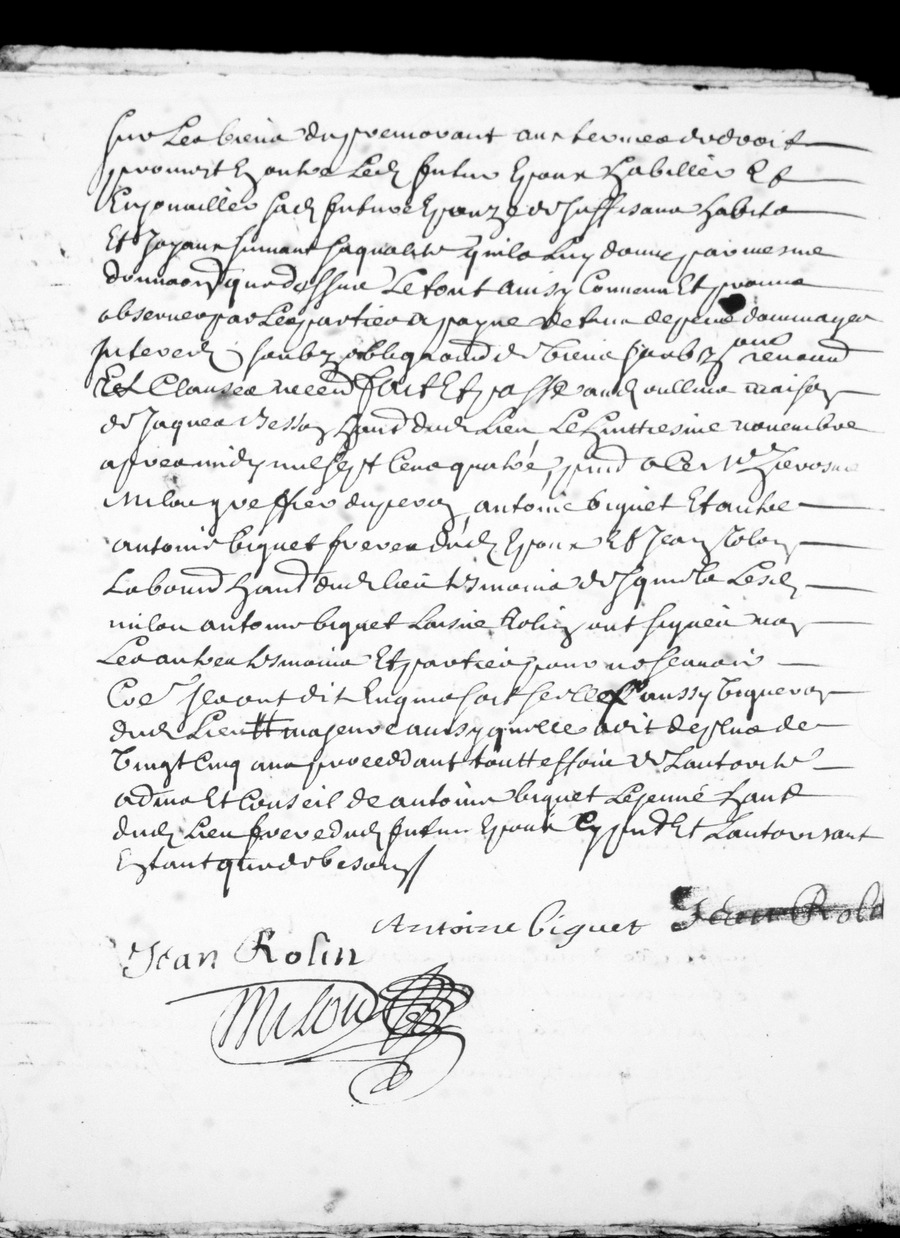 sur Les biens du premorant aux termes de droit
promet En outre Led futur Epoux habiller Et
Enjouailler sad future Epouze de suffisans habits
Et Joyaux suivant sa qualité quil Luy donne par mesme
que dessus Le tout ainsy Convenu Et promis
observer par Les parties a payne de tous despens dommages
Interetz soubz obligaond de biens soubz renond
Et Clauses necend fait Et passé aud oullins maison
de Jaques Besson hand dud Lieu Le huittiesme novembre
apres midy mil sept Cens quatre, pnd a Ce Me hierosme
Milou greffier du antoine biguet Et autre
antoine biguet freres dud Epoux Et Jean Rolin
Labourd hand dud lieu tesmoins desquels Lesd
milou antoine biguet Laisné Rolin ont signéz non
Les autres tesmoins Et parties pour ne scavoir
Ce Ils ont dit Enquis aussy
dud Lieu majeure ainsy quelle a dit de plus de
Vingt Cinq ans proceddant touttesfois de Lautorité
advis Et Conseil de antoine biguet Lejeune hand
dud Lieu frere dud futur Epoux Cy pnt Et Lautorisant
Entant que de besoing
Antoine biguet Jean Rold
Jean Rolin
Milou